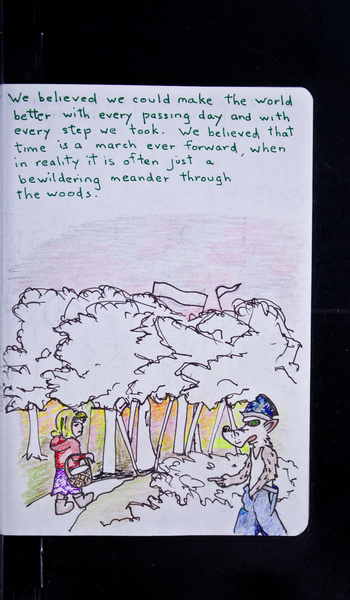 We believed we could make the world
better with every passing day and with
every step we took. We believed that
time is a march ever forward, when
in reality it is often just a
bewildering meander through
the woods.